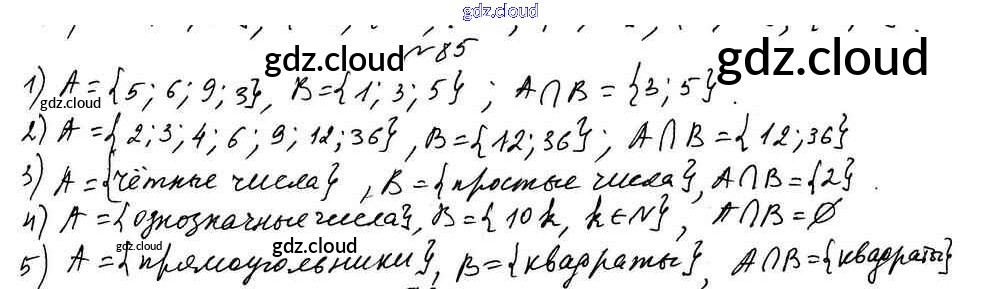 gdz.cloud
№85
gdz.cloud gdz.cloud
1) A={5; 6; 9; 3}, B={1; 3; 5}; A∩B={3; 5}.
gdz.cloud
2) A={2; 3; 4; 6; 9; 12; 36}, B={12; 36}; A∩B={12; 36}
3) A={чётные числа}, B={простые числа}, A∩B={2}.
4) A={однозначные числа}, B={10k, k∈N}, A∩B=∅
gdz.cloud gdz.cloud
5) A={прямоугольники}, B={квадраты}, A∩B={квадраты}